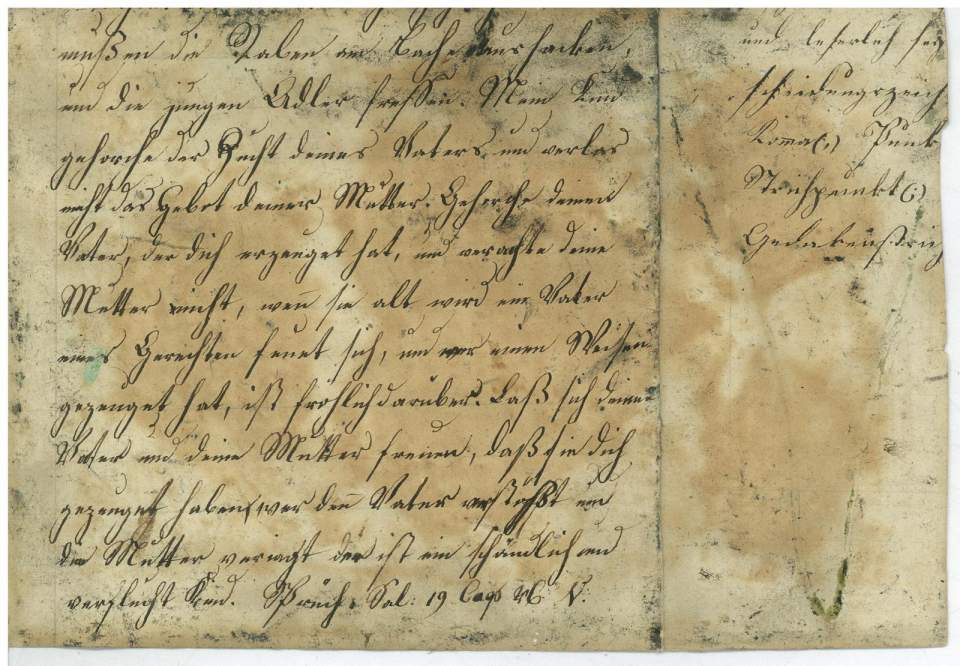 müßen die Raben am Bache aushacken,
und die jungen Adler fressen. Mein Kind
gehorche der Zucht deines Vaters, und verlas
nicht das Gebot deiner Mutter. Gehorche deinen
Vater, der dich erzeuget hat, und verachte deine
Mutter nicht, wen̄ sie alt wird ein Vater
eines Gerechten freuet sich, und wer einen Weisen
gezeuget hat, ist fröhlich darüber. Laß sich deine
Vater und deine Mutter freuen, daß sie dich
gezeuget haben, wer den Vater verstößt und
die Mutter veriagt der ist ein schändlich und
verflucht Kind. Sprüch. Sal: 19 Cap 26 V:
und leserlich sey
scheidungszeich
Komma(,) Punk
Strichpunkt(;)
Gedankenstrich